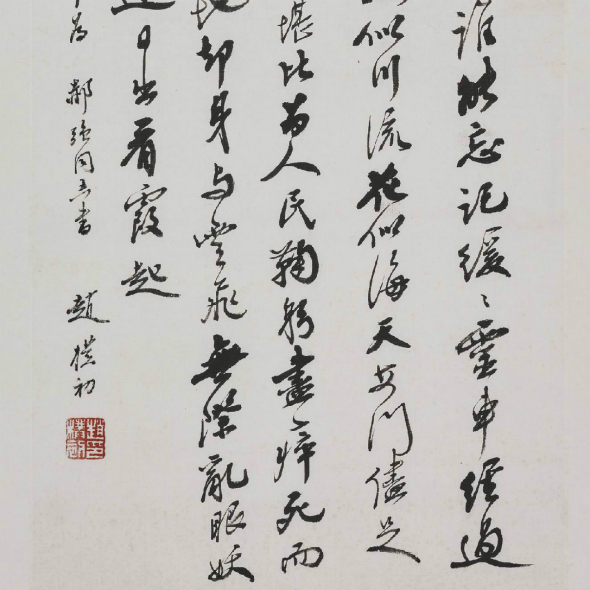 谁能忘记缓缓灵车经过
似川流花似海天安门儘足
堪比为人民鞠躬尽瘁死而
地却身与云飞无际乱眼妖
迎日出看霞起
为郝强同志书
赵朴初
赵朴初印